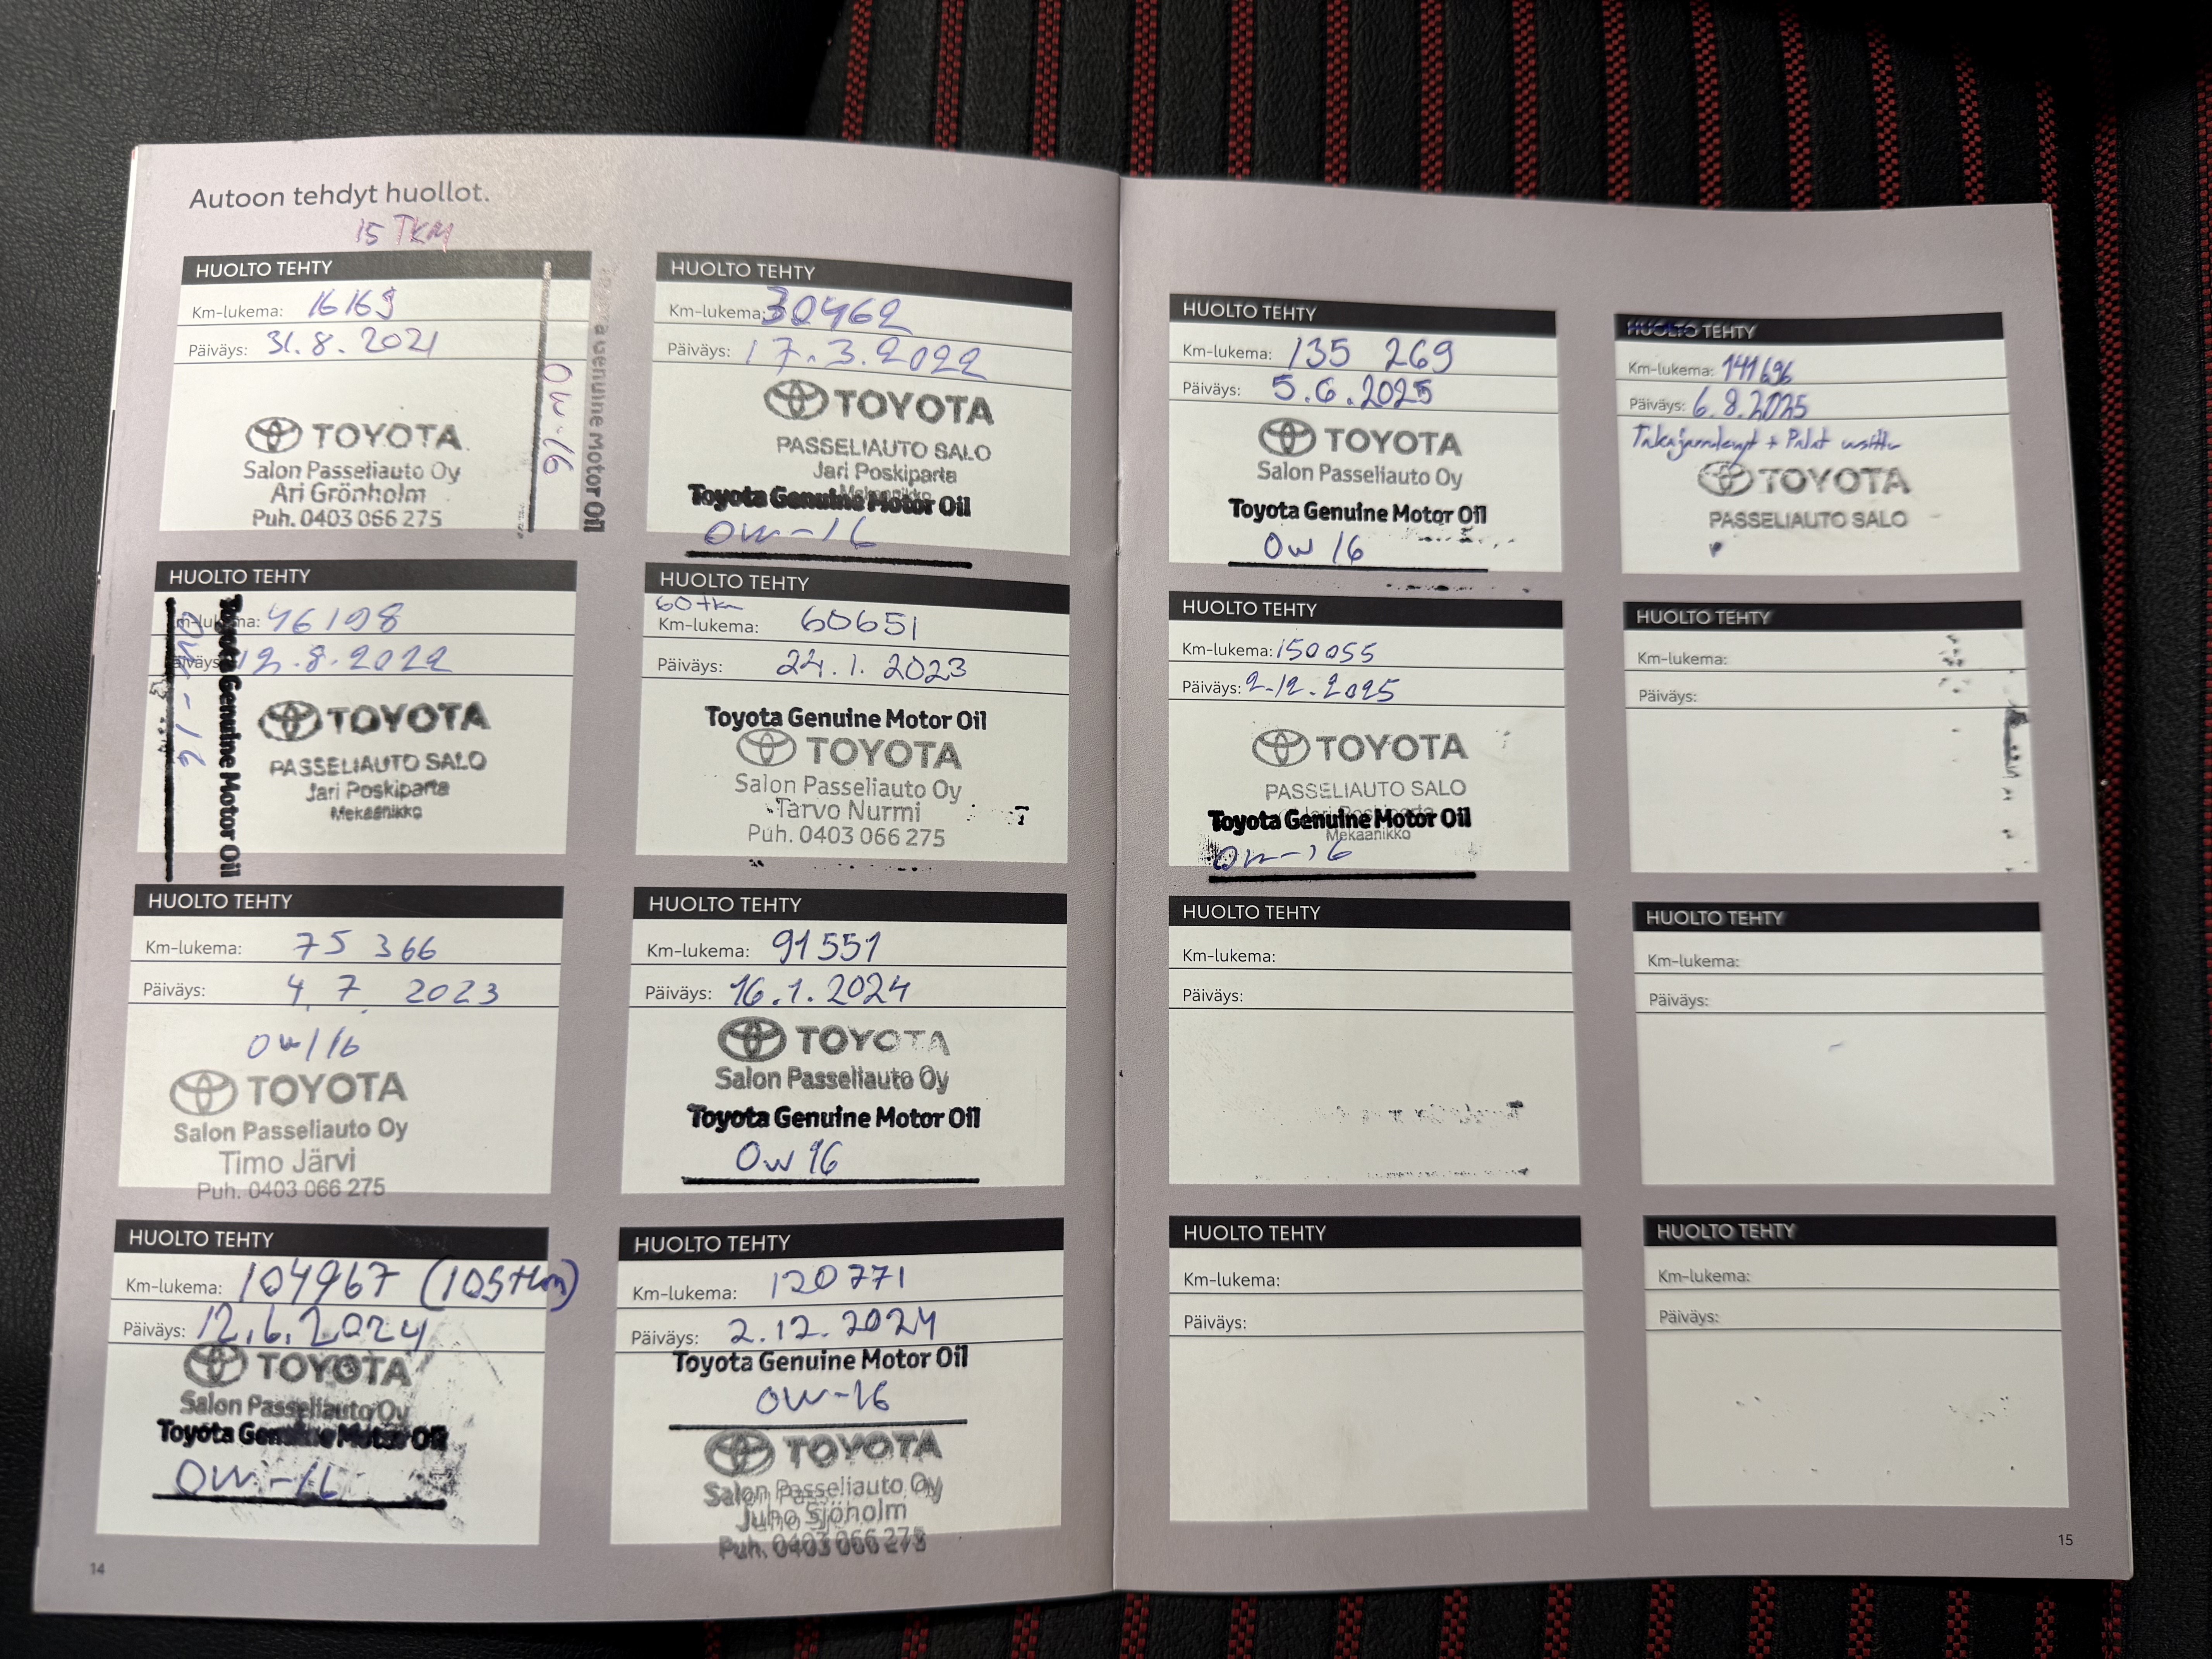 Autoon tehdyt huollot.
15 TKM
HUOLTO TEHTY
Km-lukema: 16169
Päiväys: 31.8.2021
TOYOTA
Salon Passeliauto Oy
Ari Grönholm
Puh. 0403 066 275
Genuine Motor Oil
0W-16
HUOLTO TEHTY
Km-lukema: 30462
Päiväys: 17.3.2022
TOYOTA
PASSELIAUTO SALO
Jari Poskiparta
Mekaanikko
Toyota Genuine Motor Oil
0W-16
HUOLTO TEHTY
Km-lukema: 46198
Päiväys: 12.8.2022
TOYOTA
PASSELIAUTO SALO
Jari Poskiparta
Mekaanikko
Toyota Genuine Motor Oil
0W-16
HUOLTO TEHTY
60tkm
Km-lukema: 60651
Päiväys: 24.1.2023
Toyota Genuine Motor Oil
TOYOTA
Salon Passeliauto Oy
Tarvo Nurmi
Puh. 0403 066 275
HUOLTO TEHTY
Km-lukema: 75 366
Päiväys: 4.7.2023
0W/16
TOYOTA
Salon Passeliauto Oy
Timo Järvi
Puh. 0403 066 275
HUOLTO TEHTY
Km-lukema: 91551
Päiväys: 16.1.2024
TOYOTA
Salon Passeliauto Oy
Toyota Genuine Motor Oil
0W16
HUOLTO TEHTY
Km-lukema: 104967 (105tkm)
Päiväys: 12.6.2024
TOYOTA
Salon Passeliauto Oy
Toyota Genuine Motor Oil
0W-16
HUOLTO TEHTY
Km-lukema: 120771
Päiväys: 2.12.2024
Toyota Genuine Motor Oil
0W-16
TOYOTA
Salon Passeliauto Oy
Juho Sjöholm
Puh. 0403 066 275
14
HUOLTO TEHTY
Km-lukema: 135 269
Päiväys: 5.6.2025
TOYOTA
Salon Passeliauto Oy
Toyota Genuine Motor Oil
0W 16
HUOLTO TEHTY
Km-lukema: 141696
Päiväys: 6.8.2025
Takajarrulevyt + Palat
TOYOTA
PASSELIAUTO SALO
HUOLTO TEHTY
Km-lukema: 150055
Päiväys: 2.12.2025
TOYOTA
PASSELIAUTO SALO
Toyota Genuine Motor Oil
Mekaanikko
0W-16
HUOLTO TEHTY
Km-lukema:
Päiväys:
HUOLTO TEHTY
Km-lukema:
Päiväys:
HUOLTO TEHTY
Km-lukema:
Päiväys:
HUOLTO TEHTY
Km-lukema:
Päiväys:
HUOLTO TEHTY
Km-lukema:
Päiväys:
15